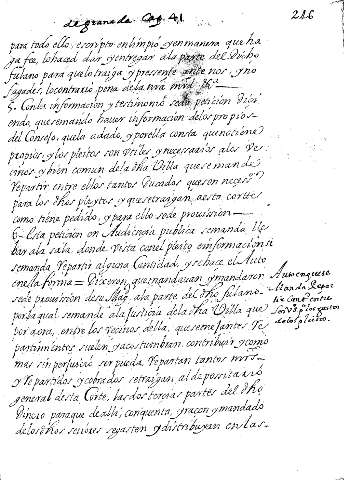 de granada Cap. 41. 216
para todo ello, escripto en limpio y en manera que ha
ga fee, lo haced dar y entregar a la parte del dicho
fulano para que lo traiga, y presente ante nos, y no
fagades lo contrario pena de la nra mrd &a
5. Con la informacion y testimonio se da peticion dizi
endo, que siendo hauer informacion de los propios
del Consejo, que la a dado, y por ella consta que no tiene
propios, y los pleitos son vtiles, y necessarios a los ve
cinos, y bien comun de la dha Villa que se mande
repartir entre ellos tantos ducados que son necess.os
para los dhos pleytos, y que se traigan, a esta corte
como tiene pedido, y para ello se de prouission
6. Esta peticion en Audiencia publica se manda lle
bar a la sala, donde vista con el pleito e informacion si
se manda repartir alguna Cantidad, y se hace el Auto
en esta forma = Dixeron que mandauan, y mandaron
se de prouission de su Mag. a la parte del dho fulano
por la qual se mande a la Justicia de la dha Villa que
por aora, entre los vecinos della, que semejantes re
partimientos suelen, y acostumbran contribuir, y como
mas sin perjuicio ser pueda, repartan tantos mrs
y repartidos, y cobrados se traigan, al depositario
general desta Corte, las dos tercias partes del dho
dinero para que de alli, con quenta, y raçon, y mandado
de los dhos señores se gasten y distribuyan en las-
Auto en que se
manda repar
tir Cant. entre
los vs. por gastos
de los pleitos.